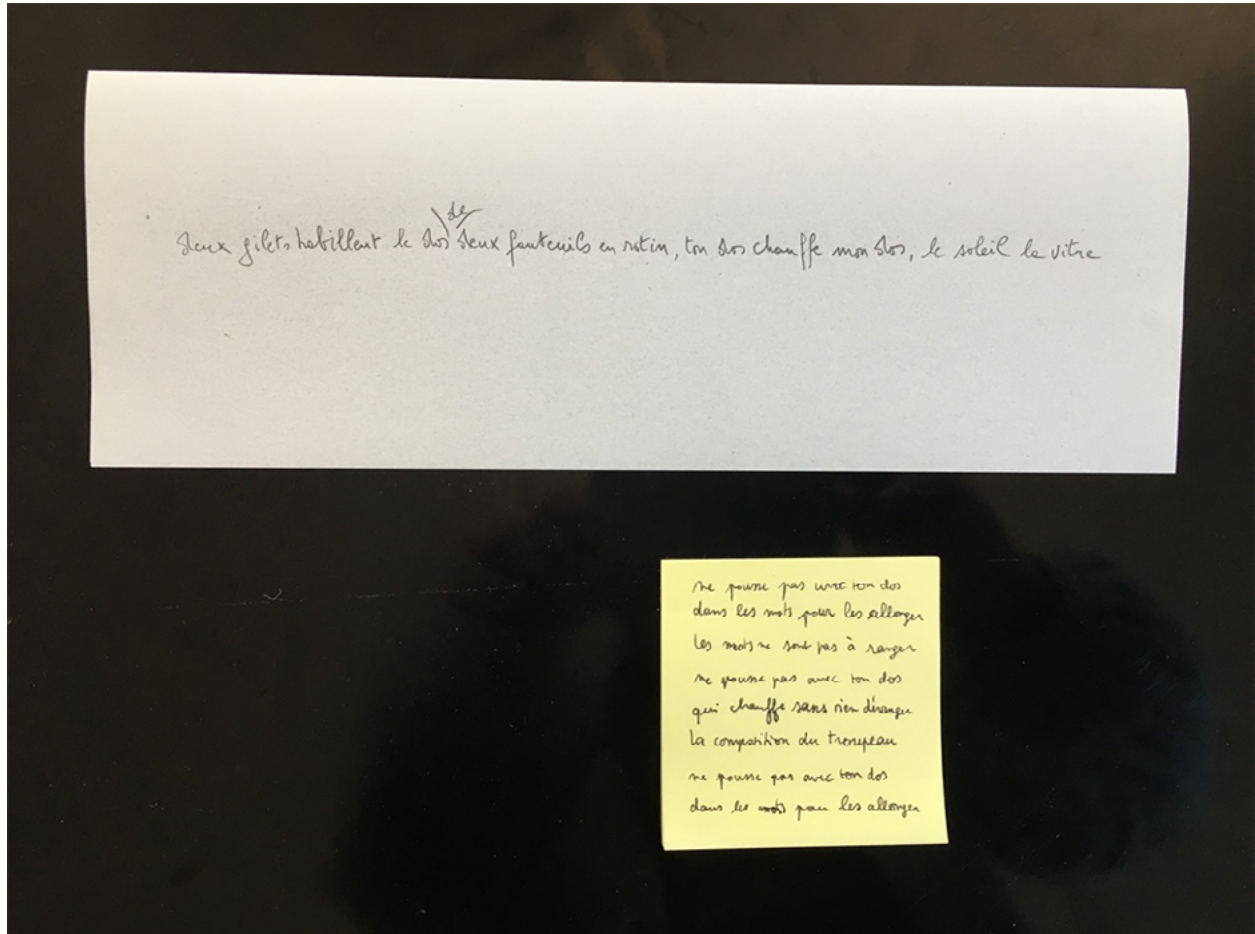 deux gilets habillent le dos de deux fauteuils en rotin, ton dos chauffe mon dos, le soleil la vitre
ne pousse pas avec ton dos
dans les mots pour les allonger
les mots ne sont pas à ranger
ne pousse pas avec ton dos
qui chauffe sans rien déranger
la composition du troupeau
ne pousse pas avec ton dos
dans les mots pour les allonger